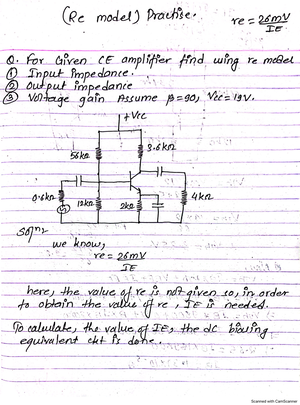 (Re model) Practise.
re = 26mV
IE
Q. For Given CE amplifier find using re model
① Input Impedance.
② Output impedance
③ Voltage gain Assume β=90, Vcc=19V.
+Vcc
56kΩ
3.6kΩ
0.6kΩ
12kΩ
2kΩ
4kΩ
Soln:
we know,
re = 26mV
IE
here, the value of re is not given so, in order
to obtain the value of re, IE is needed.
To calculate, the value of IE, the dC biasing
equivalent ckt is done.
Scanned with CamScanner